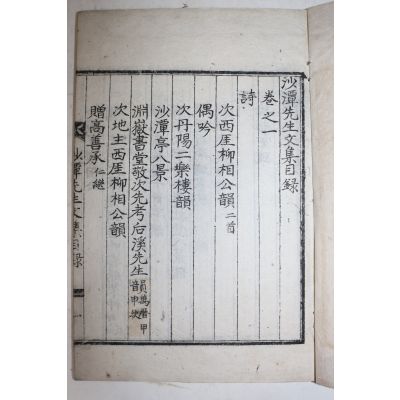 沙潭先生文集目録
卷之一
詩
次西厓柳相公韻 二首
偶吟
次丹陽二樂樓韻
沙潭亭八景
淵嶽書堂敬次先考后溪先生韻
次地主西厓柳相公韻
贈高善承 仁繼
沙潭先生文集目録 一